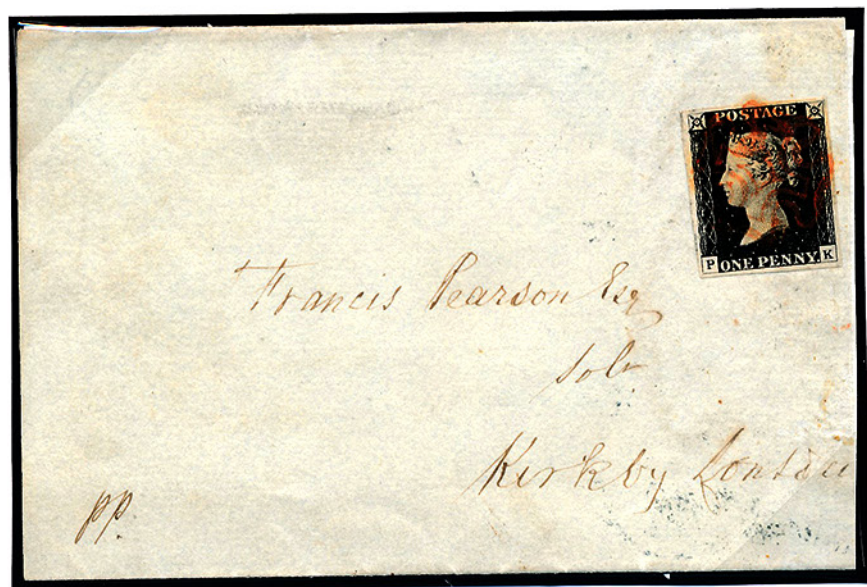 POSTAGE
P ONE PENNY K
Francis Pearson Esq
solr
Kirkby Lonsdale
pp.